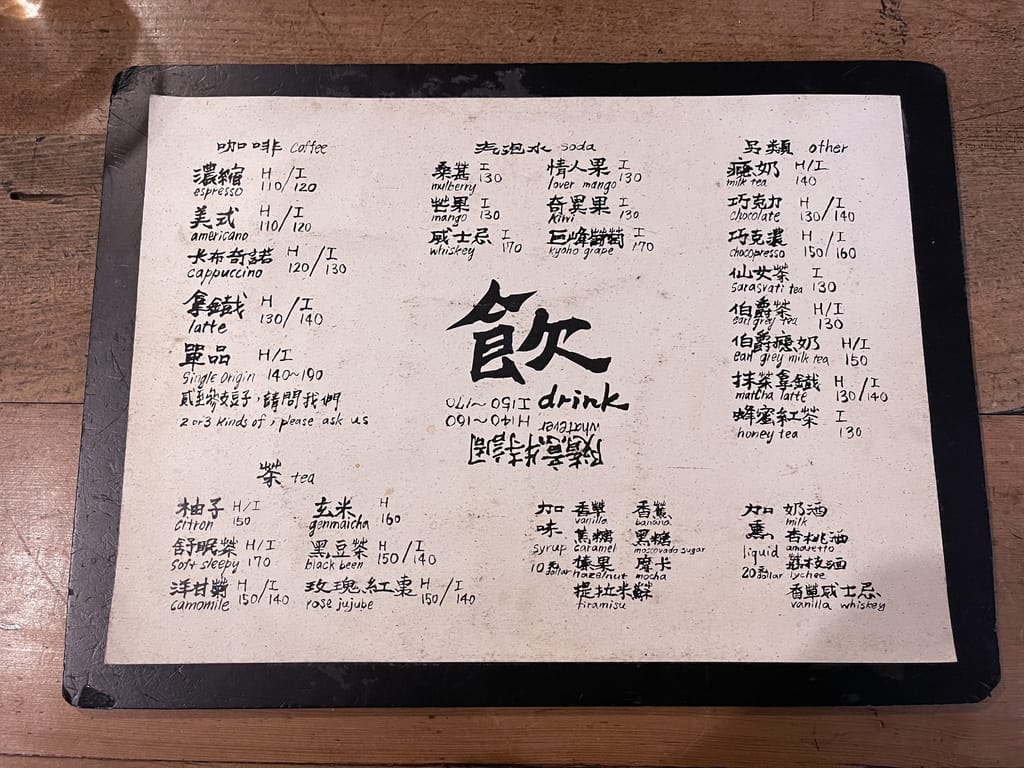 咖啡 coffee
濃縮 H/I
espresso 110/120
美式 H/I
americano 110/120
卡布奇諾 H/I
cappuccino 120/130
拿鐵 H/I
latte 130/140
單品 H/I
single origin 140~190
請問我們
2 or 3 kinds of, please ask us
汽泡水 soda
桑葚 I
mulberry 130
情人果 I
lover mango 130
芒果 I
mango 130
奇異果 I
kiwi 130
威士忌 I
whiskey 170
巨峰葡萄 I
kyoho grape 170
另類 other
癮奶 H/I
milk tea 140
巧克力 H/I
chocolate 130/140
巧克濃 H/I
chocopresso 150/160
仙女茶 I
sarasvati tea 130
伯爵茶 H/I
earl grey tea 130
伯爵癮奶 H/I
earl grey milk tea 150
抹茶拿鐵 H/I
matcha latte 130/140
蜂蜜紅茶 I
honey tea 130
飲
drink
隨意特調
whatever
H140~160
I150~170
茶 tea
柚子 H/I
citron 150
玄米 H
genmaicha 160
舒眠茶 H/I
soft sleepy 170
黑豆茶 H/I
black been 150/140
洋甘菊 H/I
camomile 150/140
玫瑰紅棗 H/I
rose jujube 150/140
加味
syrup
10 dollar
香草
vanilla
香蕉
banana
焦糖
caramel
黑糖
moscovado sugar
榛果
hazelnut
摩卡
mocha
提拉米蘇
tiramisu
加薰
liquid
20 dollar
奶酒
milk
杏桃酒
amaretto
荔枝酒
lychee
香草威士忌
vanilla whiskey